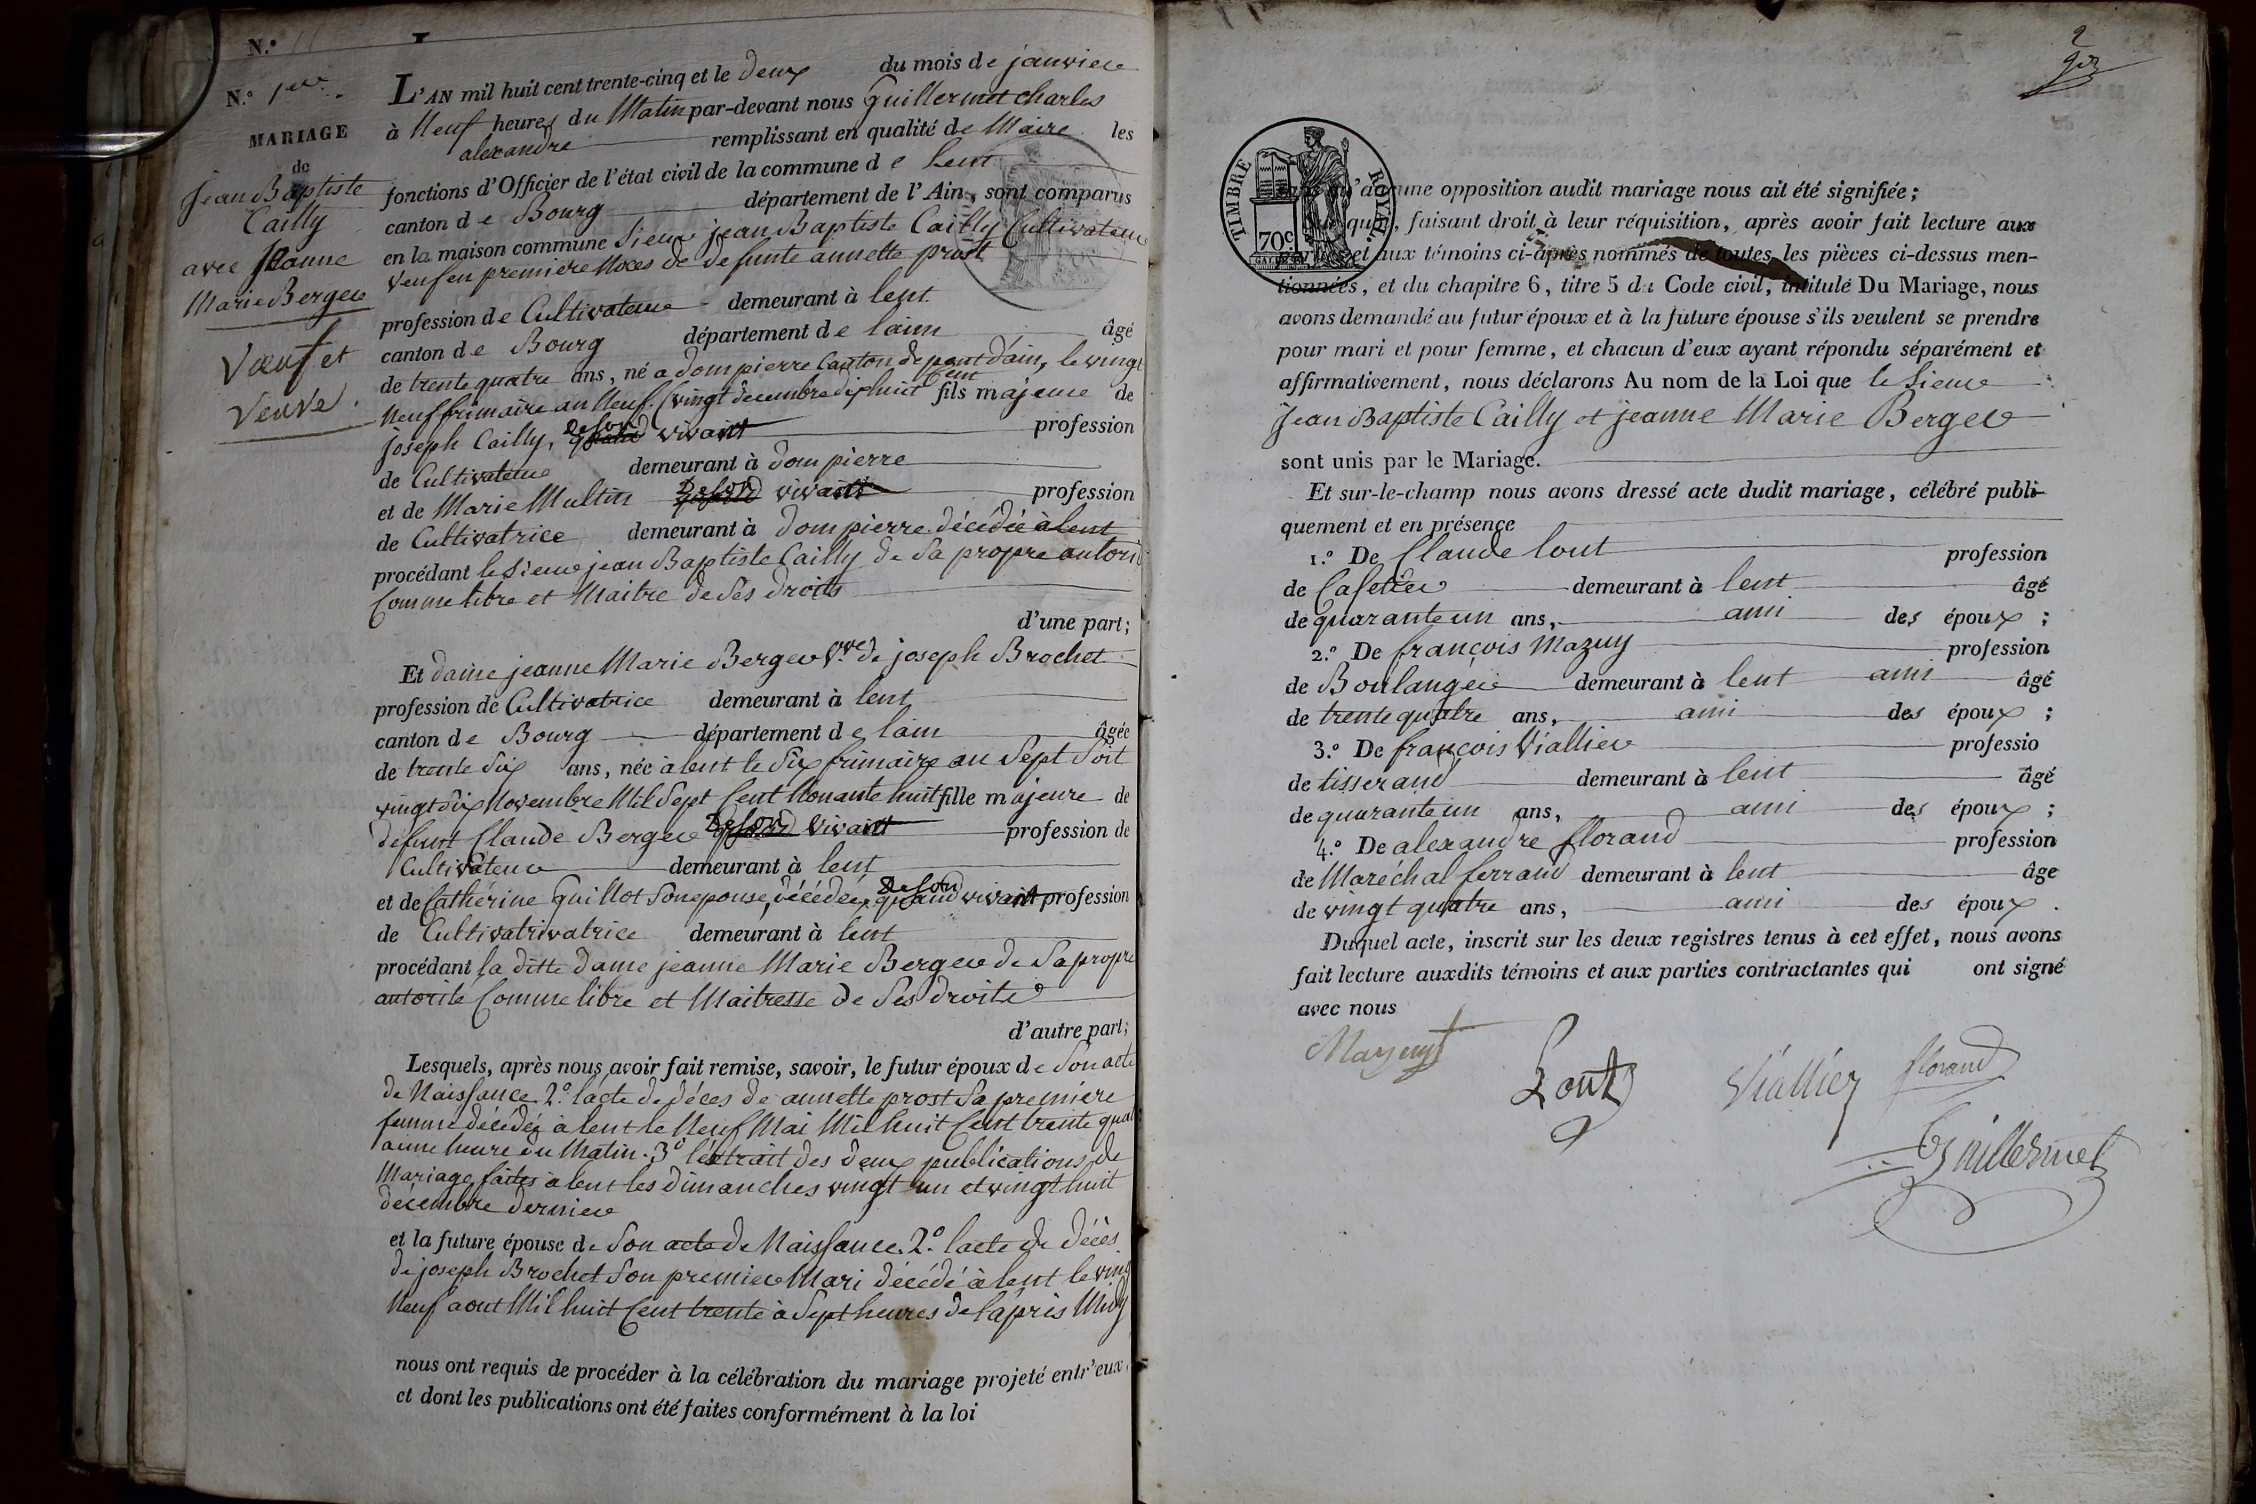 N.º
N.º 1er
MARIAGE
de
Jean Baptiste
Cailly
avec Jeanne
Marie Berger
Vœuf et
Veuve.
L'AN mil huit cent trente-cinq et le deux du mois de janvier
à Neuf heures du Matin par-devant nous Guillermet charles
alexandre remplissant en qualité de Maire les
fonctions d'Officier de l'état civil de la commune de lent
canton de Bourg département de l'Ain, sont comparus
en la maison commune Sieur jean Baptiste Cailly Cultivateur
Veuf en premiere Noces de defunte annette prost
profession de Cultivateur demeurant à lent
canton de Bourg département de lain âgé
de trente quatre ans, né a dompierre Canton de pont d'ain, le vingt
Neuf frimaire an Neuf. (vingt decembre dix huit Cent fils majeur de
joseph Cailly, de son vivant profession
de Cultivateur demeurant à dompierre
et de Marie Multin de son vivant profession
de Cultivatrice demeurant à dompierre décédée à lent
procédant le Sieur jean Baptiste Cailly de Sa propre autori
Comme libre et Maitre de Ses droits
d'une part;
Et dame jeanne Marie Berger Vve de joseph Brochet
profession de Cultivatrice demeurant à lent
canton de Bourg département de lain âgée
de trente Six ans, née à lent le Six frimaire an Sept Soit
vingt Six Novembre Mil Sept Cent Nonante huit fille majeure de
défunt Claude Berger de son vivant profession de
Cultivateur demeurant à lent
et de Cathérine Guillot Son epouse, décédée, de son vivant profession
de Cultivatrivatrice demeurant à lent
procédant la ditte Dame jeanne Marie Berger de Sa propre
autorité Comme libre et Maitresse de Ses droits
d'autre part;
Lesquels, après nous avoir fait remise, savoir, le futur époux de Son acte
de Naissance. 2.º lacte de déces de annette prost Sa premiére
femme décédée à lent le Neuf Mai Mil huit Cent trente quat
a une heure du Matin. 3º léxtrait des deux publications de
Mariage faites à lent les dimanches vingt un et vingt huit
décembre dernier
et la future épouse de Son acte de Naissance. 2.º lacte de décès
de joseph Brochet Son premier Mari décédé à lent le ving
Neuf aout Mil huit Cent trente à Sept heures de l'aprés Midy
nous ont requis de procéder à la célébration du mariage projeté entr'eux
et dont les publications ont été faites conformément à la loi
2
TIMBRE ROYAL.
70c.
qu'aucune opposition audit mariage nous ait été signifiée;
faisant droit à leur réquisition, après avoir fait lecture aux
et aux témoins ci-après nommés de toutes les pièces ci-dessus men-
tionnées, et du chapitre 6, titre 5 du Code civil, intitulé Du Mariage, nous
avons demandé au futur époux et à la future épouse s'ils veulent se prendre
pour mari et pour femme, et chacun d'eux ayant répondu séparément et
affirmativement, nous déclarons Au nom de la Loi que le Sieur
Jean Baptiste Cailly et jeanne Marie Berger
sont unis par le Mariage.
Et sur-le-champ nous avons dressé acte dudit mariage, célébré publi-
quement et en présence
1.º De Claude lout profession
de Cafetier demeurant à lent âgé
de quarante un ans, ami des époux ;
2.º De françois Mazuy profession
de Boulanger demeurant à lent ami âgé
de trente quatre ans, ami des époux ;
3.º De françois Viallier professio
de tisserand demeurant à lent âgé
de quarante un ans, ami des époux ;
4.º De alexandre florand profession
de Maréchal ferrand demeurant à lent âge
de vingt quatre ans, ami des époux .
Duquel acte, inscrit sur les deux registres tenus à cet effet, nous avons
fait lecture auxdits témoins et aux parties contractantes qui ont signé
avec nous
Mazuy
Lout Viallier florand
Guillermet